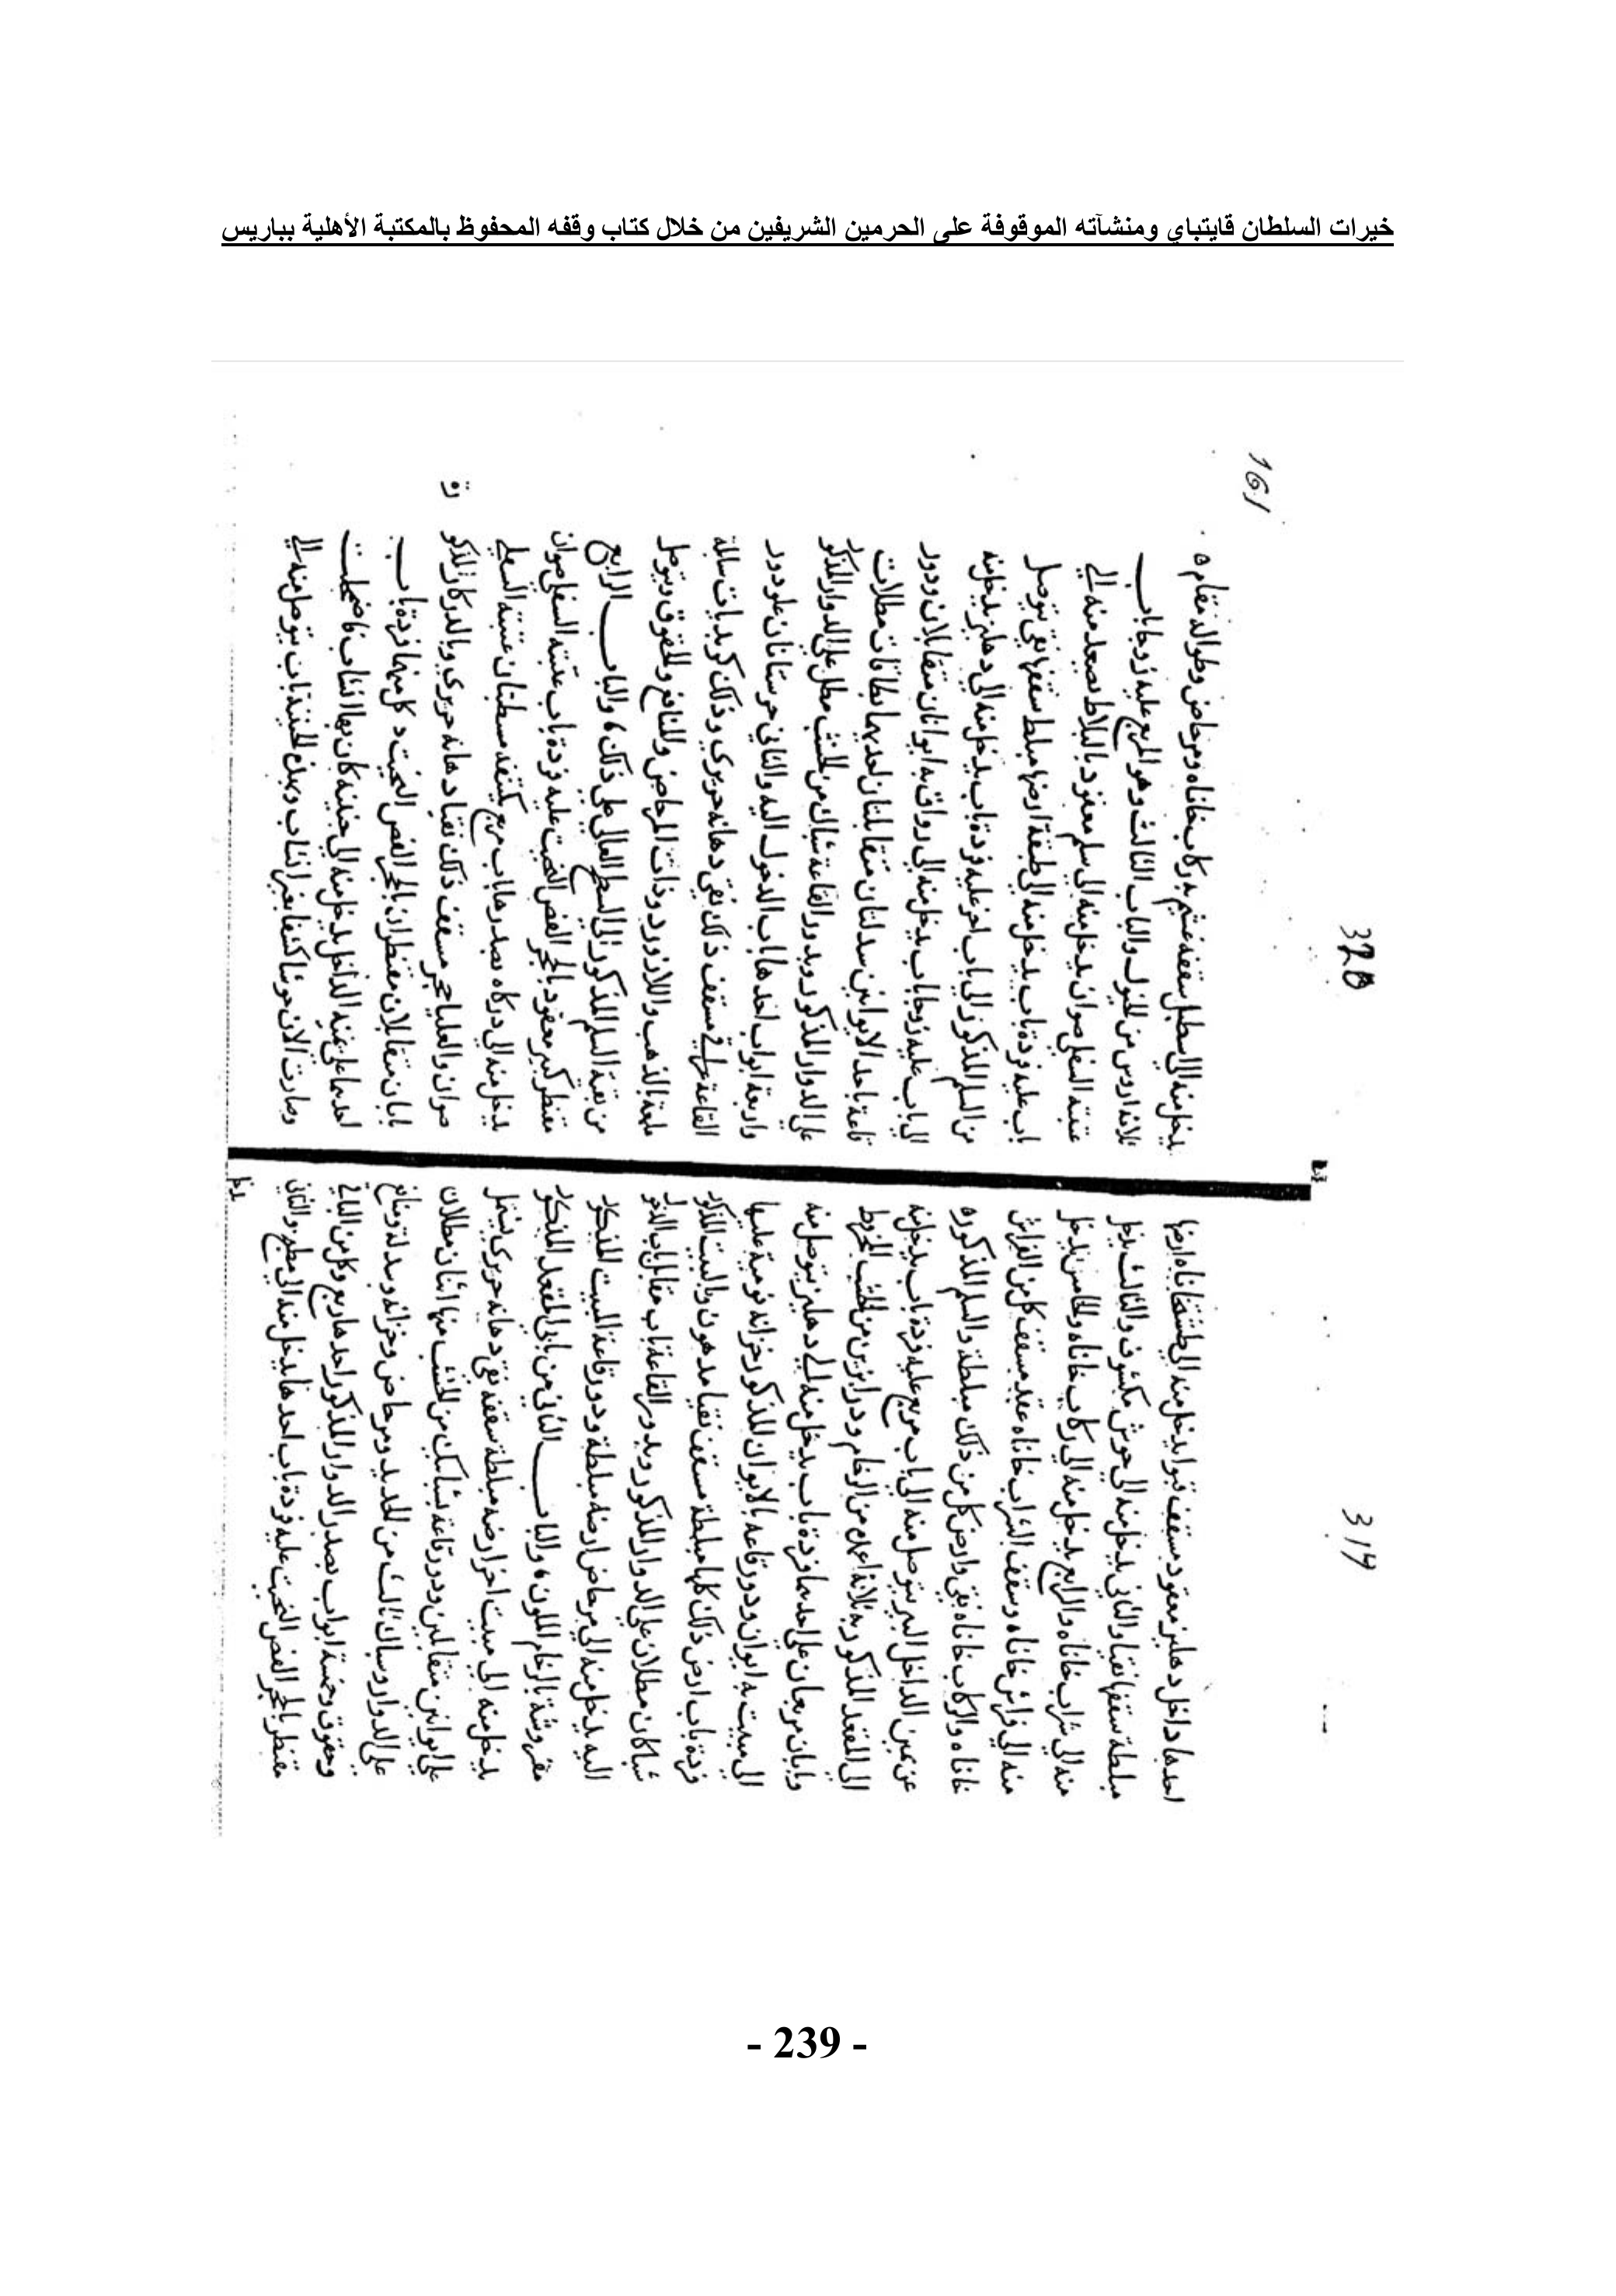 خيرات السلطان قايتباي ومنشآته الموقوفة على الحرمين الشريفين من خلال كتاب وقفه المحفوظ بالمكتبة الأهلية بباريس
319
احدها داخل دهليز معقود مسقف قبوا يدخل منه الى طشتخاناه ارضها
مبلطة سقفها نقيا والثاني يدخل منه الى حوش مكشوف والثالث يدخل
منه الى شراب خاناه والرابع يدخل منه الى ركاب خاناه والخامس يدخل
منه الى فراش خاناه وسقف الشراب خاناه عقد مسقف كل من الفراش
خاناه والركاب خاناه نقي وارض كل من ذلك مبلطة والسلم المذكوره
عن يمين الداخل اليه يتوصل منه الى باب مربع عليه فردة باب يدخل منه
الى المقعد المذكور به ثلاثة اعمدة من الرخام ودرابزين من الخشب الخرط
وبابان مربعان على احدهما فردة باب يدخل منه الى دهليز يتوصل منه
الى مبيت به ايوان ودورقاعه بالايوان المذكور خزانه نومية عليها
فردة باب ارض ذلك كلها مبلطة مسقف نقيا مدهون وبالبيت المذكور
شباكان مطلان على الدوار المذكور وبدورالقاعة باب مقابل باب الدخول
اليه يدخل منه الى مرحاض ارضه مبلطة ودورقاعة المبيت المذكور
مفروشة بالرخام الملون ٥ والباب الثاني من بابي المقعد المذكور
يدخل منه الى مبيت اخر ارضه مبلطة سقفه نقي دهانه حريري يشتمل
على ايوانين متقابلين ودورقاعة بشبابيك من الخشب منها اثنان مطلان
على الدوار وشباك ثالث من الحديد ومرحاض وخزانه وسدلة ومنافع
وحقوق وخمسة ابواب بصدر الدوار المذكور احدها مربع وكل من الباقي
مقنطر بالحجر الفص النحيت عليه فردة باب احدها يدخل منه الى مطبخ والثاني
يدخل
320
161
يدخل منه الى اسطبل سقفه غشيم بركاب خاناه ومرحاض وطوالة مقام
ثلاثة ارؤس من الخيول والباب الثالث وهو المربع عليه زوجا باب
عتبته السفلى صوان يدخل منه الى سلم معقود بالبلاط يصعد منه الى
باب عليه فردة باب يدخل منه الى طبقة ارضها مبلط سقفها نقي يتوصل
من السلم المذكور الى باب اخر عليه فردة باب يدخل منه الى دهليز يدخل منه
الى باب عليه زوجا باب يدخل منه الى رواق به ايوانان متقابلان ودور
قاعة باحد الايوانين سدلتان متقابلتان احديهما بطاقات مطلات
على الدوار المذكور وبدور القاعة شباك من الخشب مطل على الدوار المذكور
واربعة ابواب احدها باب الدخول اليه والثاني خرستانان علو دور
القاعة عراقي مسقف ذلك نقي دهانه حريري وذلك كريديات سائلة
ملمعة بالذهب واللازورد وذات المرحاض والمنافع والحقوق ويتوصل
من بقية السلم المذكور الى السطح العالي على ذلك ٥ والباب الرابع
مقنطر كبير معقود بالحجر الفص النحيت عليه فردة باب عتبته السفلى صوان
يدخل منه الى دركاه بصدرها باب مربع يكتنفه مسطبتان عتبته السفلى
صوان والعليا حجر مسقف ذلك نقيا دهانه حريري وبالدركاه المذكورة
بابان متقابلان مقنطران بالحجر الفص النحيت كل منهما فردة باب
احدهما على يمنة الداخل يدخل منه الى جنينه كان بها انشاب فاضمحلت
وصارت الان حوشا كشفا بغير انشاب وبهذه الجنينة باب يتوصل منه الى
- 239 -